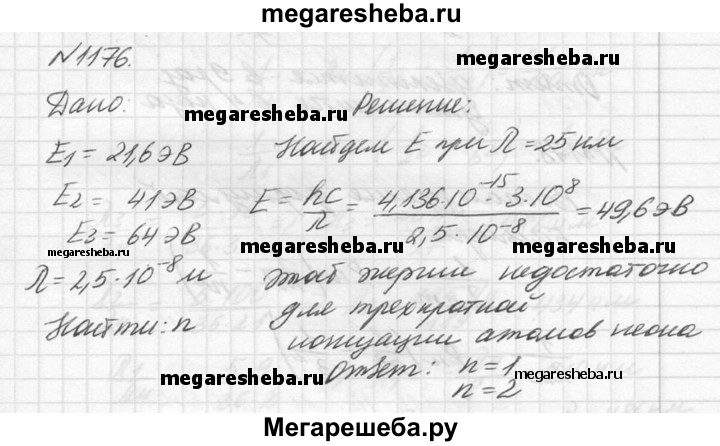 megaresheba.ru
№1176.
megaresheba.ru
Дано: megaresheba.ru Решение:
E1 = 21,6 эВ Найдем E при λ = 25 нм
E2 = 41 эВ E = hc/λ = 4,136·10^-15·3·10^8 / 2,5·10^-8 = 49,6 эВ
E3 = 64 эВ
megaresheba.ru megaresheba.ru
λ = 2,5·10^-8 м этой энергии недостаточно
Найти: n для трехкратной
ионизации атомов неона
megaresheba.ru Ответ: n = 1 megaresheba.ru
n = 2
Мегарешеба.ру